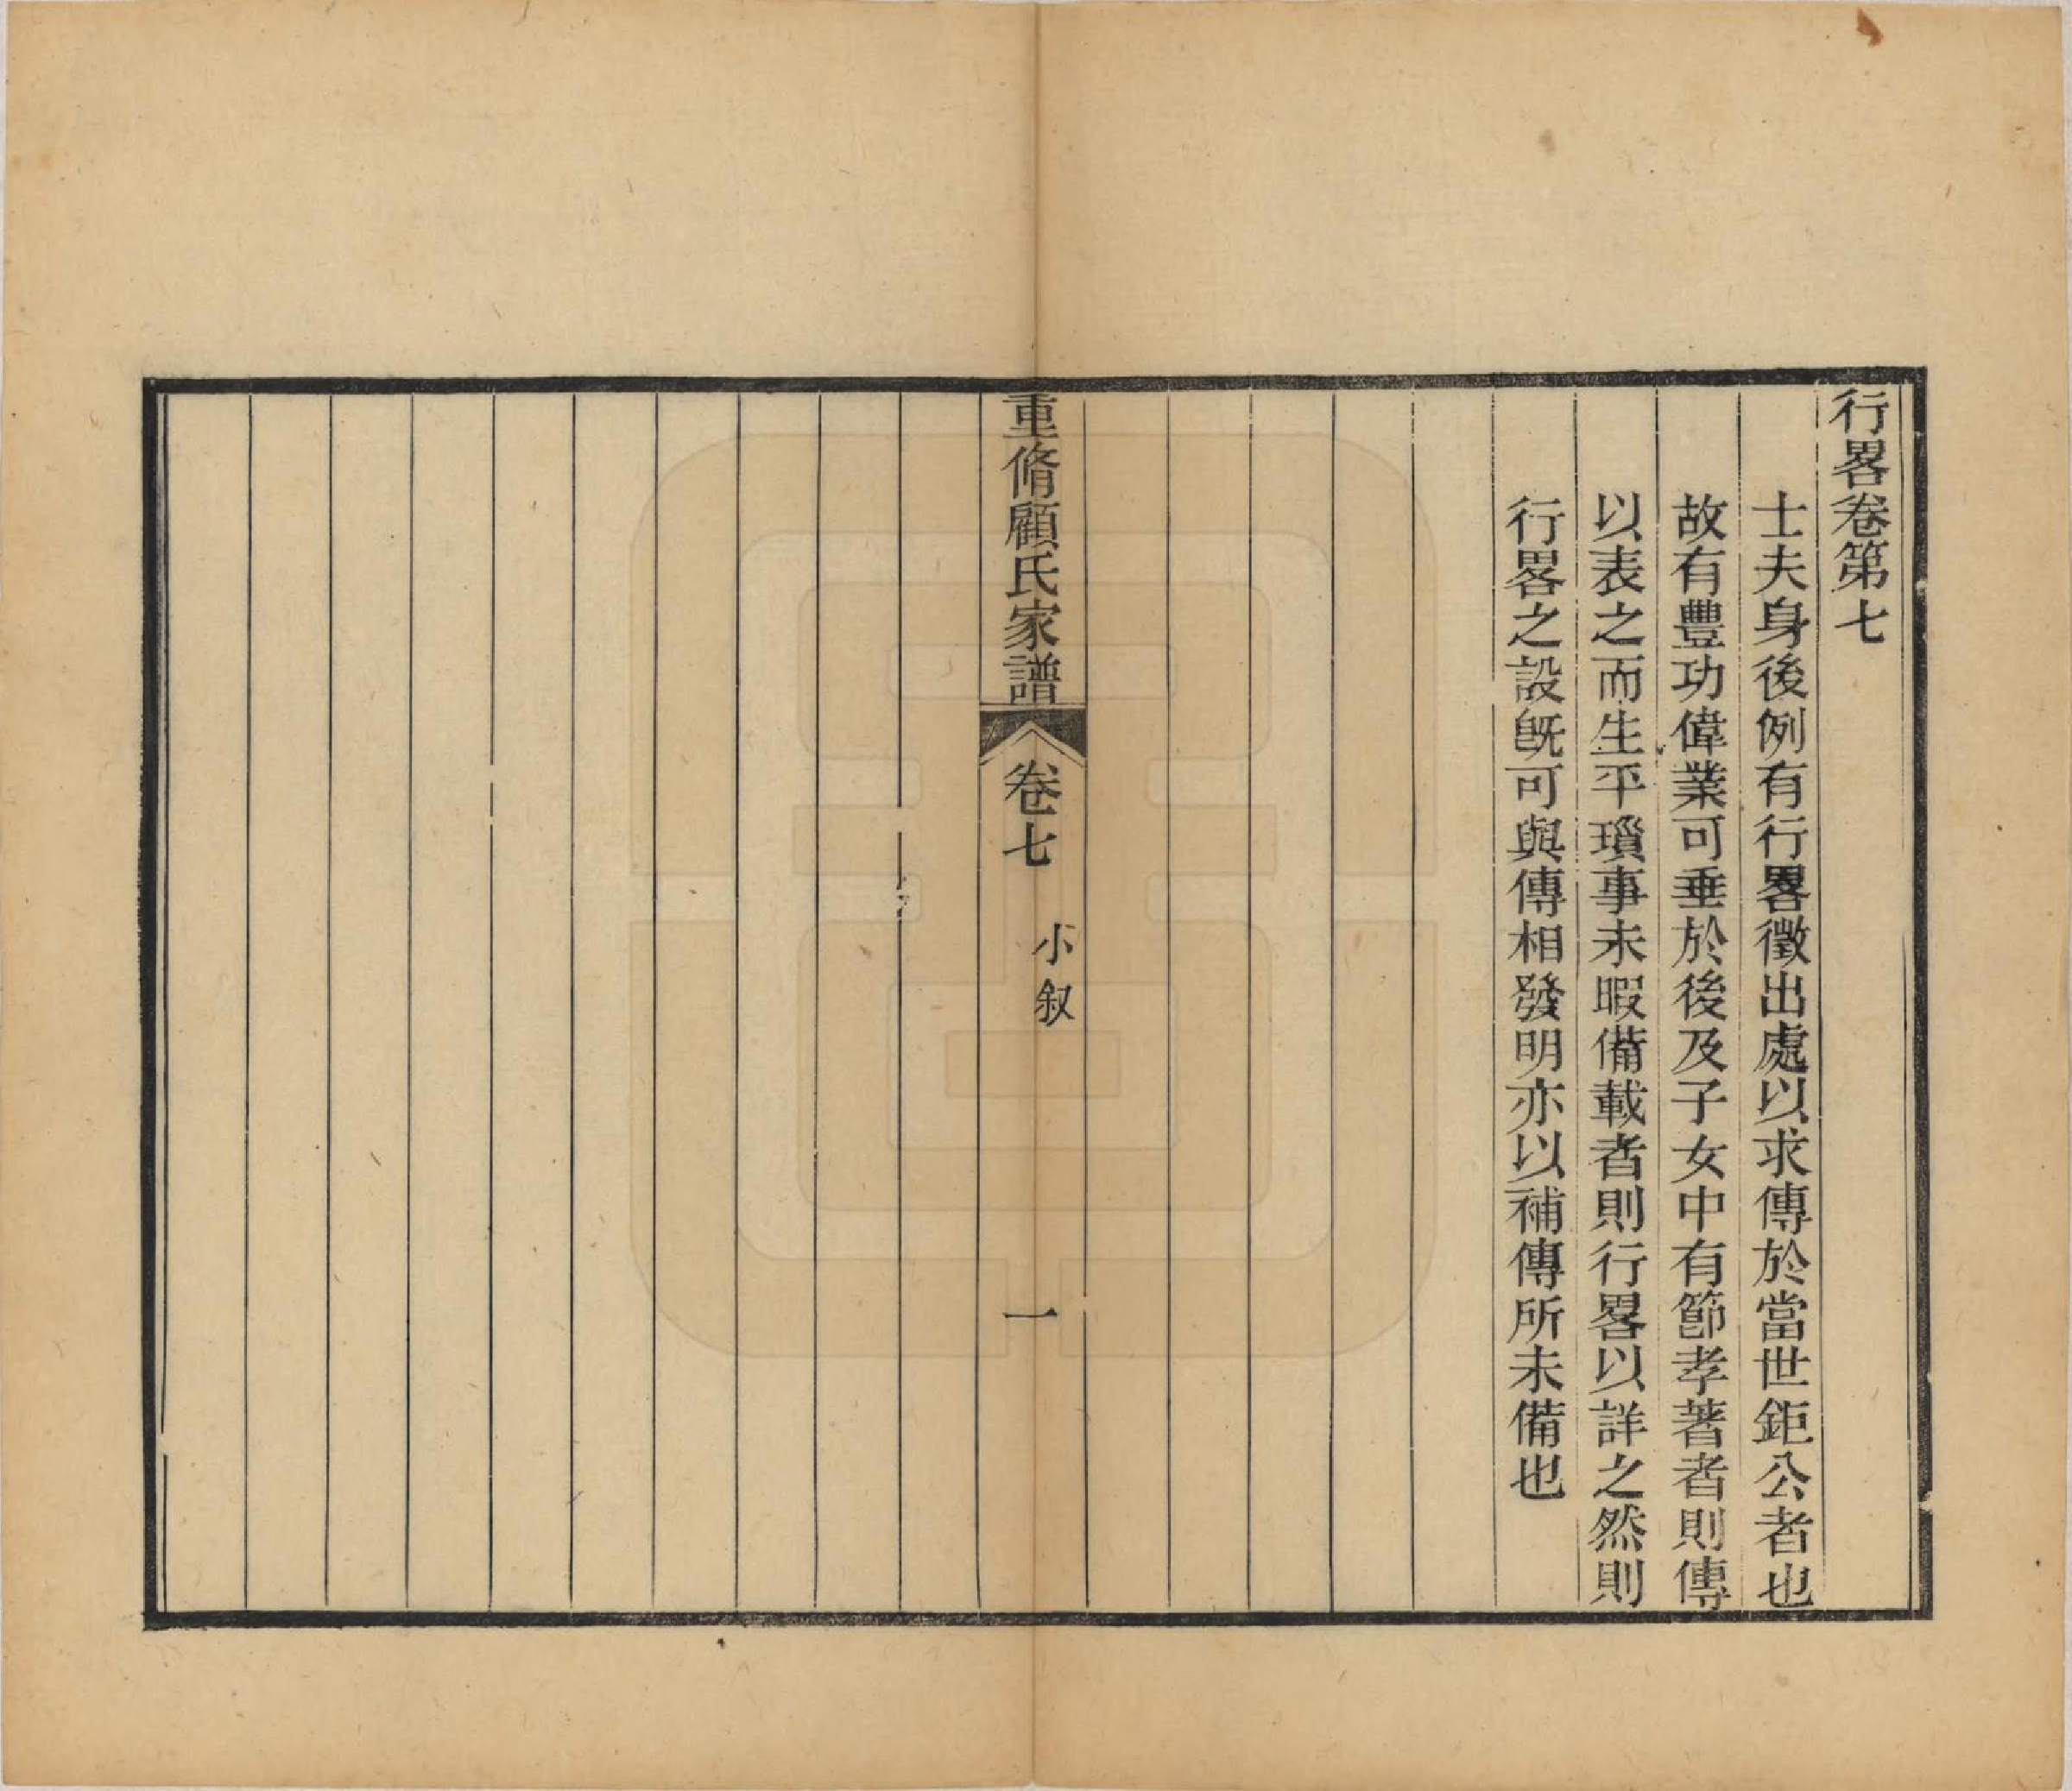 行畧卷第七
士夫身後例有行畧徵出處以求傳於當世鉅公者也
故有豐功偉業可垂於後及子女中有節孝著者則傳
以表之而生平瑣事未暇備載者則行畧以詳之然則
行畧之設旣可與傳相發明亦以補傳所未備也
重脩顧氏家譜
卷七
小叙
一